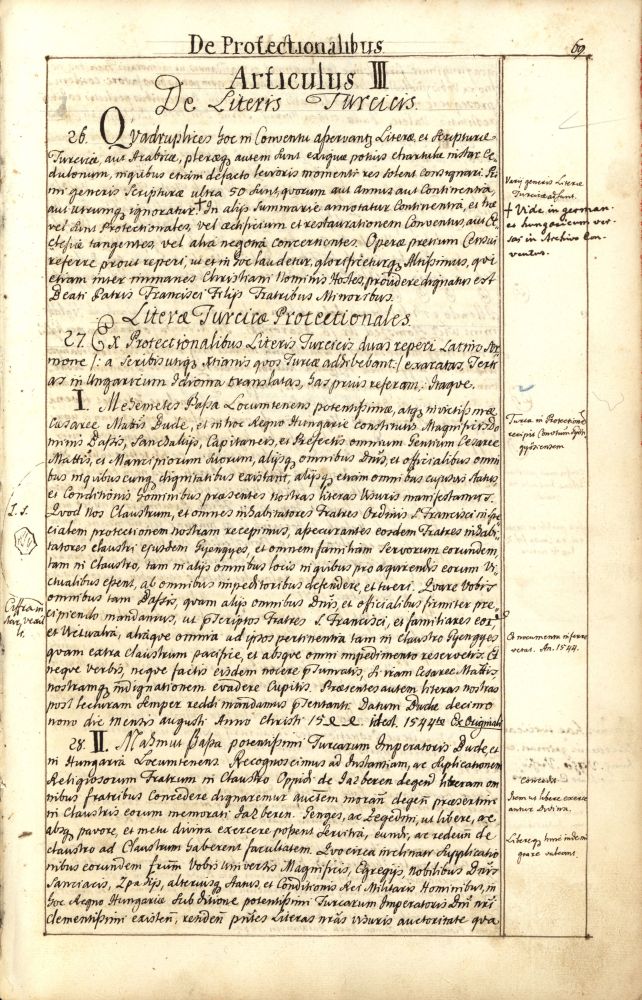 De Protectionalibus
69
Articulus III
De Literis Turcicis.
26. Quadruplices hoc in Conventu asservantur Literae, et Scripturae
Turcicae, aut Arabicae, pleraeque autem sunt exiguae potius chartulae instar Ce„
dulonum, in quibus etiam defacto levioris momenti res solent consignari. Pri
mi generis Scripturae ultra 50 sunt, quorum aut annus aut Continentia,
aut utrumque ignoratur.† In alijs Summarie annotatur Continentia, et hae
vel sunt Protectionales, vel aedificium et restaurationem Conventus, aut Ec„
clesiae tangentes, vel alia negotia concernentes. Operae pretium Censui
referre prout reperi, ut et in hoc laudetur, glorificeturque Altissimus, qui
etiam inter immanes Christiani Nominis Hostes, providere dignatus est
Beati Patris Francisci Filijs Fratribus Minoribus.
Varij generis Literae
Turcicae adsunt.
† Vide in german.
et hungaricum ver„
sas in Archivo Con„
ventus.
Literae Turcicae Protectionales.
27. Ex Protectionalibus Literis Turcicis duas reperi Latino Ser
mone /: a Scribis utique Xtianis quos Turcae adhibebant :/ exaratas, Terti
as in Ungaricum Idioma translatas, has prius referam: Itaque.
I. Mehemetes Passa Locumtenens potentissimae, atque invictissimae
Caesareae Mattis Budae, et in hoc Regno Hungariae constitutus Magnificis Do
minis Bassis, Sanchakijs, Capitaneis, et Praefectis omnium Gentium Caesareae
Mattis, et Mancipiorum suorum, alijsque omnibus Dnis, et officialibus omni
bus in quibuscunque dignitatibus existant, alijsque etiam omnibus cujusvis status,
et Conditionis hominibus praesentes nostras literas visuris manifestamus.
Quod nos Claustrum, et omnes inhabitatores Fratres Ordinis S. Francisci in spe
cialem protectionem nostram recepimus, assecurantes eosdem Fratres inhabi„
tatores claustri ejusdem Gyengyes, et omnem familiam Servorum eorundem,
tam in Claustro, tam in alijs omnibus locis in quibus pro aquirendis eorum Vi„
ctualibus essent, ab omnibus impeditoribus defendere, et tueri. Quare Vobis
omnibus tam Bassis, quam alijs omnibus Dnis, et officialibus firmiter prae„
cipiendo mandamus, ut pscriptos Fratres S. Francisci, et familiares eor,
et Victualia, aliaque omnia ad ipsos pertinentia tam in claustro Gyengyes
quam extra Claustrum pacifice, et absque omni impedimento reservetis. Et
neque verbis, neque factis eisdem nocere psumatis, si iram Caesareae Mattis
nostramque indignationem evadere Cupitis. Praesentes autem literas nostras
post lecturam semper reddi mandamus psentanti. Datum Budae decimo
nono die Mensis augusti Anno Christi idest. 1544to Ex Originali
Turca in Protectionem
recipit Conventum Gyön
gyösiensem
L. S.
Ex nocumenta inferre
vetat. An. 1544.
28. II. Mahmut Bassa potentissimi Turcarum Imperatoris Budae, et
in Hungaria Locumtenens. Recognoscimus ad Instantiam, ac Suplicationem
Religiosorum Fratrum in Claustro Oppidi de Jazberen degend liberam om
nibus fratribus Concedere dignaremur auctem moran degen praesertim
in Claustris eorum memorati Jazberen Genges, ac Zegedini, ut libere, ac
absque pavore, et metu divina exercere possent servitia, eundi, ac redeun de
claustro ad Claustrum haberent facultatem. Quocirca inclinati Supplicatio
nibus eorundem frum Vobis Universis Magnificis, Egregijs, nobilibus Dnis
Sanciacis, Zpahijs, alteriusque Status et Conditionis Rei Militaris Hominibus, in
hoc Regno Hungariae sub ditione potentissimi Turcarum Imperatoris Dni nri
Clementissimi existen, renden pntes Literas nras visuris auctoritate qua
Concedit
Item ut libere exerce
antur Divina.
Litereque hinc inde mi
grare valeant.